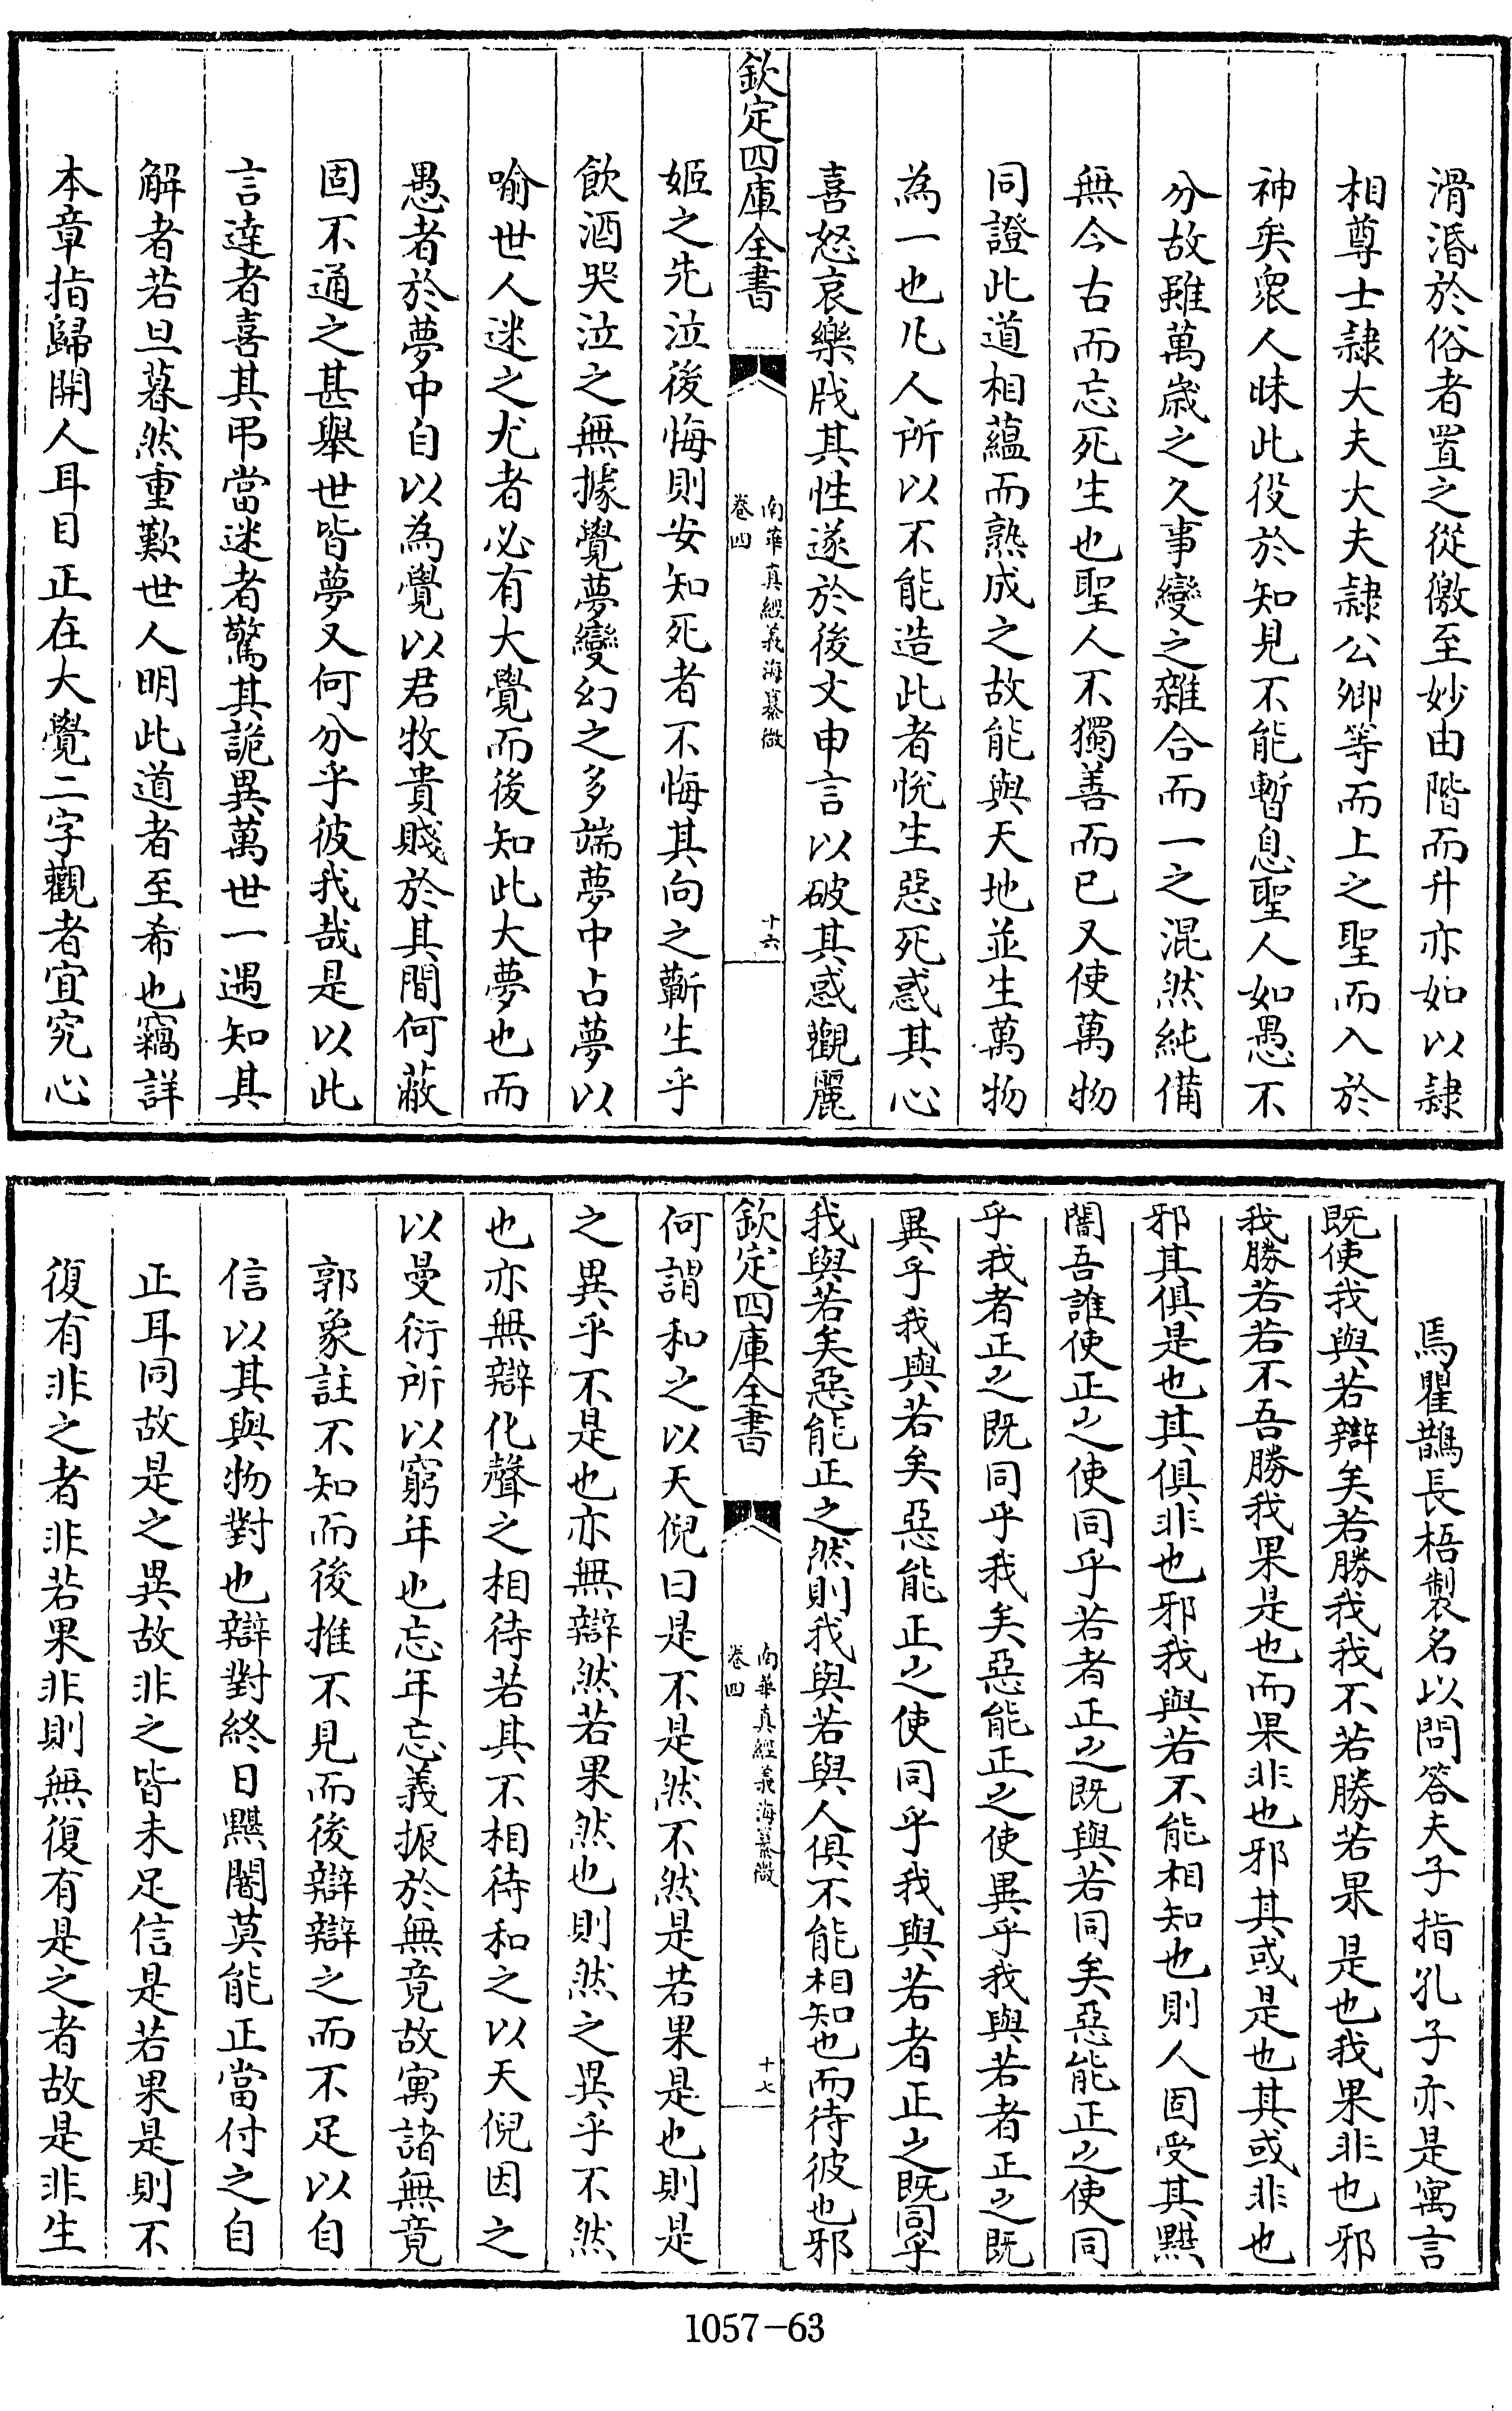 滑湣於俗者置之從儌至妙由階而升亦如以隷
相尊士隷大夫大夫隷公卿等而上之聖而入於
神矣衆人昧此役於知見不能暫息聖人如愚不
分故雖萬歲之久事變之雜合而一之混然純備
無今古而忘死生也聖人不獨善而已又使萬物
同證此道相蘊而熟成之故能與天地並生萬物
為一也凡人所以不能造此者恱生惡死惑其心
喜怒哀樂戕其性遂於後文申言以破其惑觀麗
欽定四庫全書
南華真經義海纂微
卷四
十六
姬之先泣後悔則安知死者不悔其向之蘄生乎
飲酒哭泣之無據覺夢變幻之多端夢中占夢以
喻世人迷之尤者必有大覺而後知此大夢也而
愚者於夢中自以為覺以君牧貴賤於其間何蔽
固不通之甚舉世皆夢又何分乎彼我哉是以此
言達者喜其弔當迷者驚其詭異萬世一遇知其
解者若旦暮然重歎世人明此道者至希也竊詳
本章指歸開人耳目正在大覺二字觀者宜究心
焉瞿鵲長梧製名以問答夫子指孔子亦是寓言
既使我與若辯矣若勝我我不若勝若果是也我果非也邪
我勝若若不吾勝我果是也而果非也邪其或是也其或非也
邪其俱是也其俱非也邪我與若不能相知也則人固受其黮
闇吾誰使正之使同乎若者正之既與若同矣惡能正之使同
乎我者正之既同乎我矣惡能正之使異乎我與若者正之既
異乎我與若矣惡能正之使同乎我與若者正之既同乎
我與若矣惡能正之然則我與若與人俱不能相知也而待彼也邪
欽定四庫全書
南華真經義海纂微
卷四
十七
何謂和之以天倪曰是不是然不然是若果是也則是
之異乎不是也亦無辯然若果然也則然之異乎不然
也亦無辯化聲之相待若其不相待和之以天倪因之
以曼衍所以窮年也忘年忘義振於無竟故寓諸無竟
郭象註不知而後推不見而後辯辯之而不足以自
信以其與物對也辯對終日黮闇莫能正當付之自
正耳同故是之異故非之皆未足信是若果是則不
復有非之者非若果非則無復有是之者故是非生
1057-63